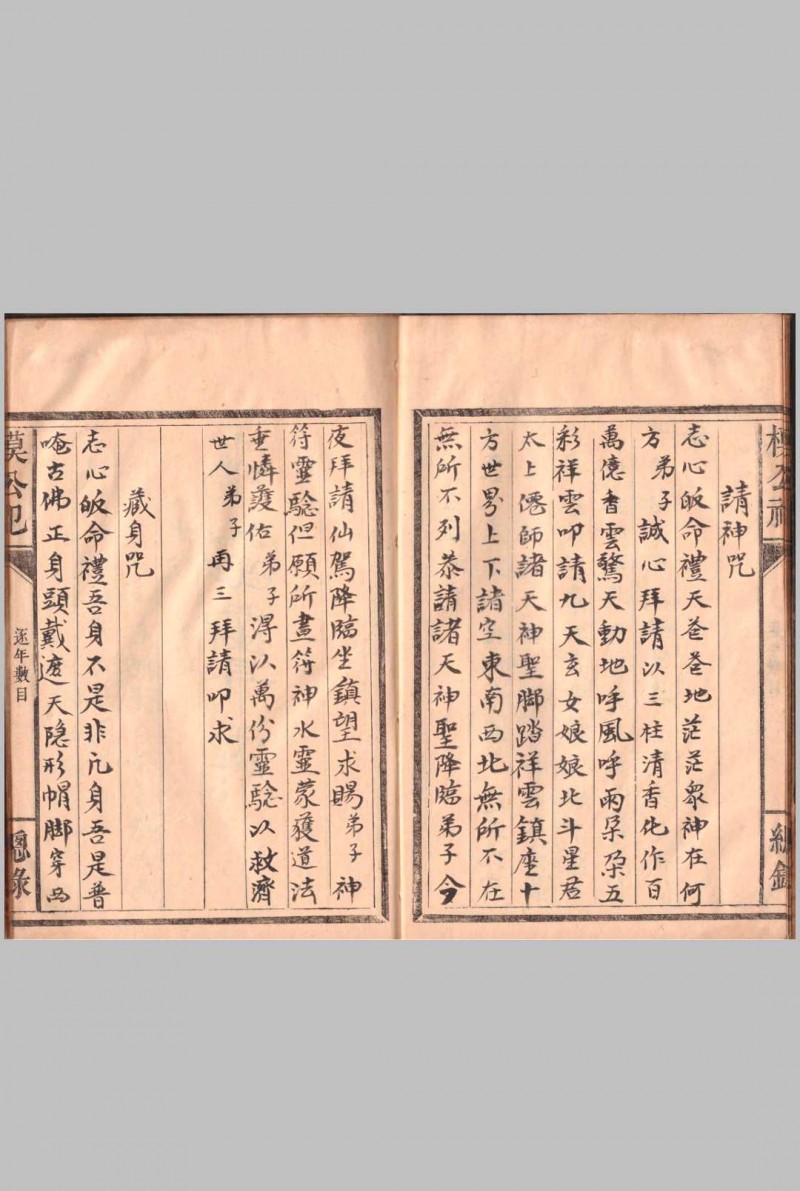 請神咒
志心皈命禮天苍苍地茫茫眾神在何
方弟子誠心拜請以三柱清香化作百
萬億香雲驚天動地呼風呼雨朵朵五
彩祥雲叩請九天玄女娘娘北斗星君
太上僊師諸天神聖脚踏祥雲鎮座十
方世界上下諸空東南西北無所不在
無所不列恭請諸天神聖降臨弟子今
夜拜請仙駕降臨坐鎮望求賜弟子神
符靈驗但願所畫符神水靈蒙獲道法
垂憐護佑弟子得以萬份靈驗以救濟
世人弟子再三拜請叩求
藏身咒
志心皈命禮吾身不是非凢身吾是普
唵古佛正身頭戴遮天隐形帽脚穿西
逐年數目
總錄